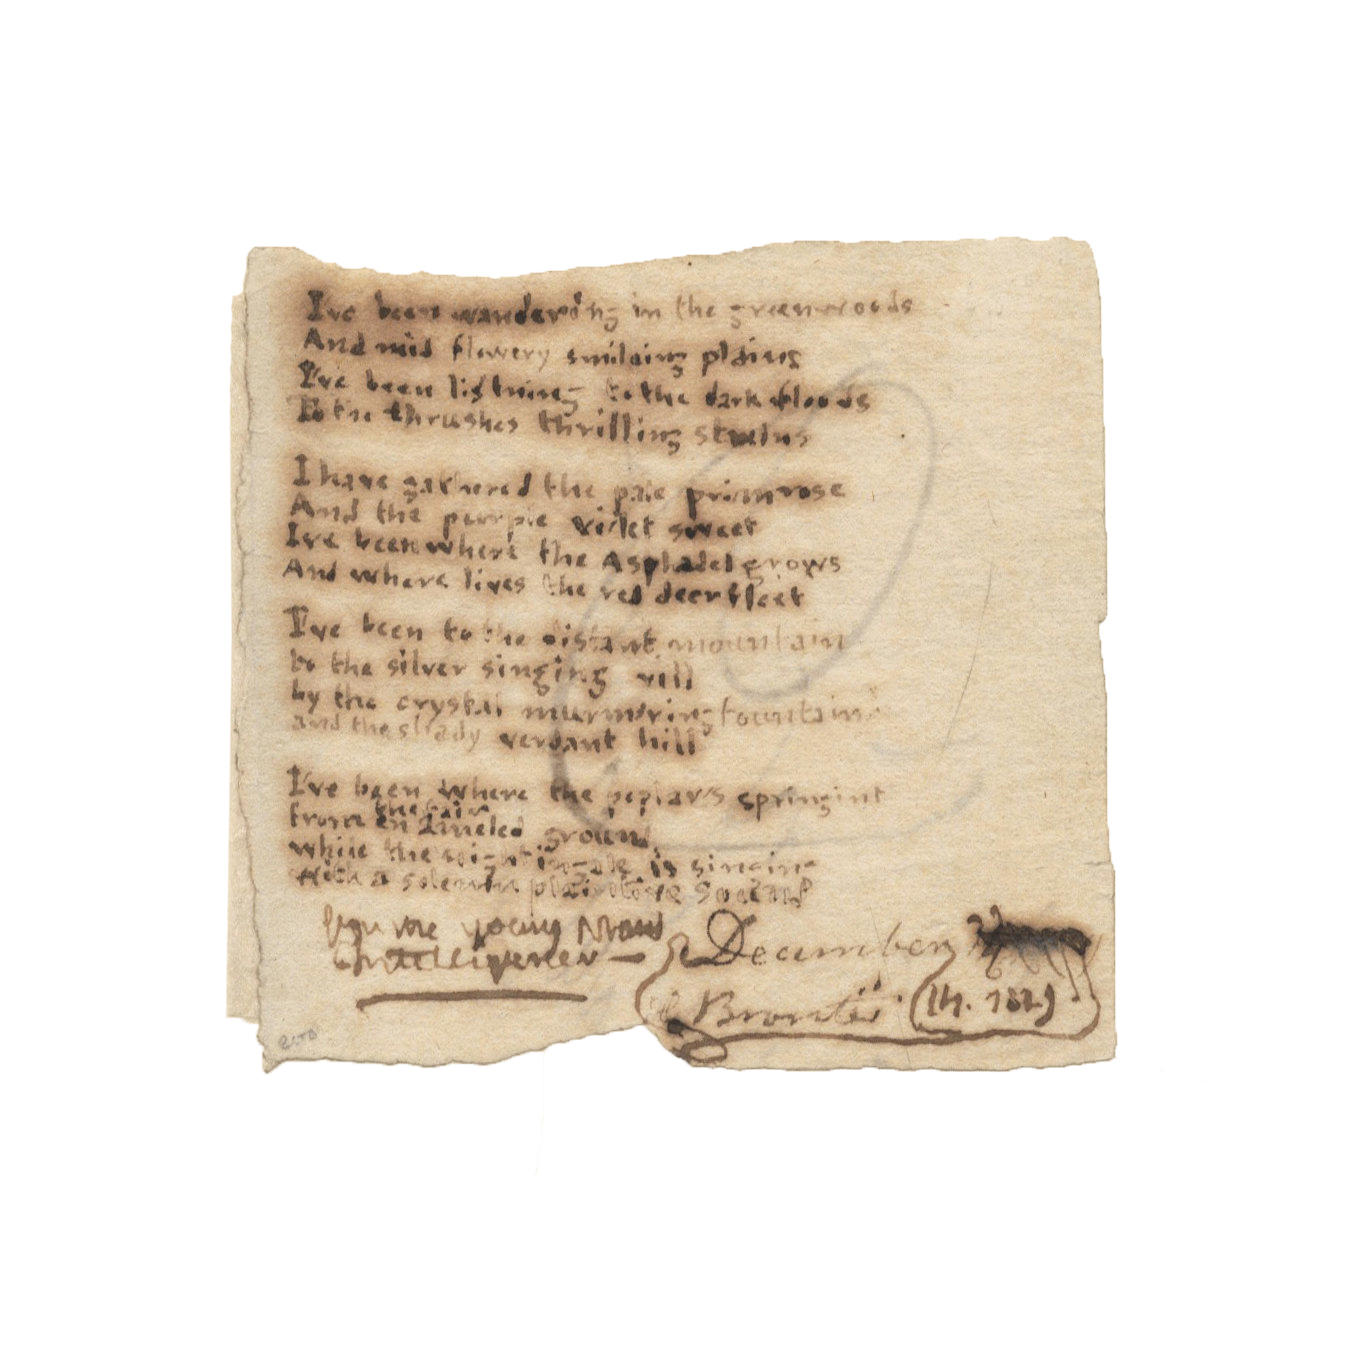 I've been wandering in the greenwoods
And mid flowery smilaing plains
I've been listning to the dark floods
To the thrushes thrilling strains
I have gathered the pale primrose
And the purple violet sweet
I've been where the Asphadel grows
And where lives the red deer fleet
I've been to the distant mountain
to the silver singing rill
by the crystal murmering fountain
and the shady verdant hill
I've been where the poplar's springint
from the fair enameled ground
while the nightingale is singing
with a solemn plaintive sound
young
Intelligencer — December
C Bronte 14. 1829